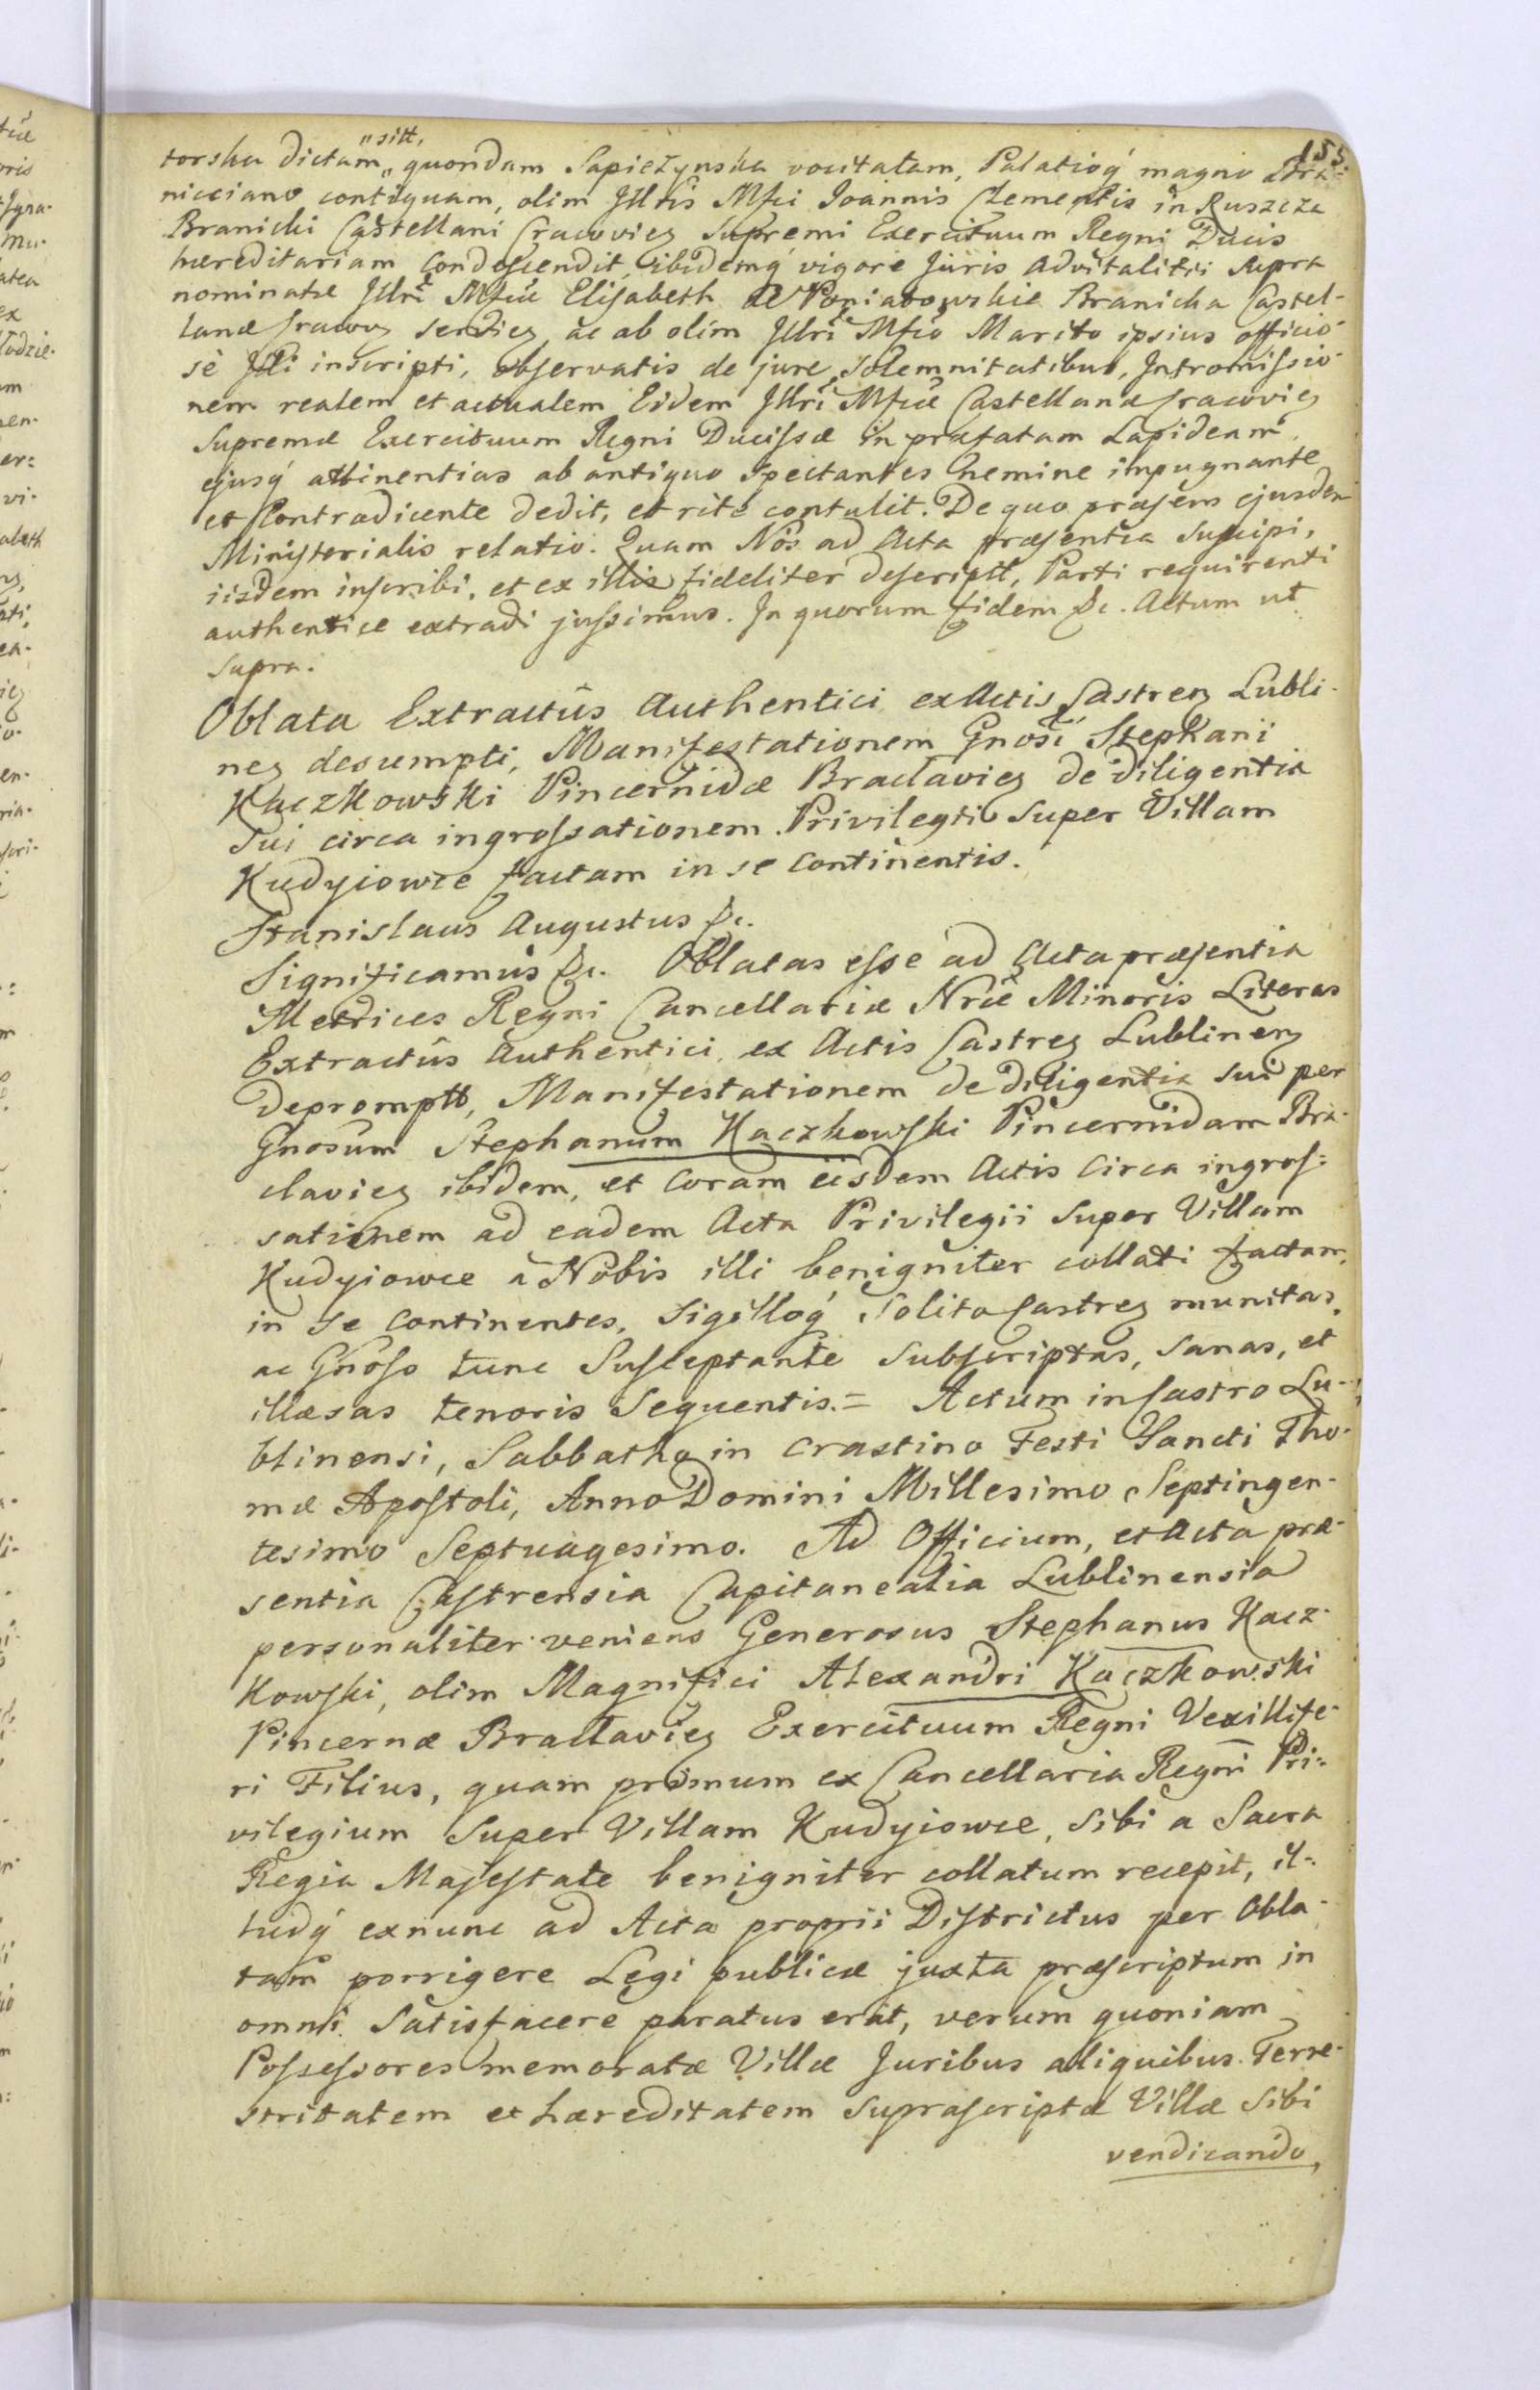 155.
torska dictam "sitt," quondam Sapieżynska vocitatam, Palatioq́ magno Bra-
nicciano contiquam, olim Jllris Mfci Joannis Clementis in Ruszcza
Branicki Castellani Cracovieȝ Supremi Exercituum Regni Ducis
hæreditariam condescendit, ibidemq́ vigore Juris advitalitii supra
nominatæ Jllrĩ Mfcæ Elisabeth de Poniatowskie Branicka Castel-
lanæ Cracovȝ servieȝ ac ab olim Jllrĩ Mfco Marito ipsius officio-
sè Jlli inscripti, observatis de jure solemnitatibus, Jntromissio-
nem realem et actualem Eidem Jllrĩ Mfcæ Castellanæ Cracovieȝ
Supremæ Exercituum Regni Ducissæ in præfatam Lapideam
ejusq́ attinentias ab antiquo spectantes nemine impugnante
et Contradicente dedit, et rite contulit. De quo præsens ejusdem
Ministerialis relatio. Quam Nos ad Acta præsentia suscipi,
iisdem inscribi, et ex illis fideliter descriptt, Parti requirenti
authentice extradi jussimus. Jn quorum fidem &c. Actum ut
supra.
Oblata Extractûs Authentici ex Actis Castreȝ Lubli-
neȝ desumpti, Manifestationem Gnosi Stephani
Kaczkowski Pincernidæ Braclavieȝ de diligentia
sui circa ingrossationem Privilegii super Villam
Kudyiowce factam in se continentis.
Stanislaus Augustus &c.
Significamus &c. Oblatas esse ad Acta præsentia
Metrices Regni Cancellariæ Nrae Minoris Literas
Extractûs Authentici, ex Actis Castreȝ Lublineȝ
depromptt, Manifestationem de diligentia sui per
Gnosum Stephanum Kaczkowski Pincernidam Bra-
clavieȝ ibidem, et coram iisdem Actis circa ingros-
sationem ad eadem Acta Privilegii super Villam
Kudyiowce a Nobis illi benigniter collati factam,
in se continentes, Sigilloq́ solito Castreȝ munitas,
ac Gnoso tunc Susceptante subscriptas, sanas, et
illæsas tenoris sequentis. = Actum in Castro Lu-
blinensi, Sabbatho in crastino Festi Sancti Tho-
mæ Apostoli, Anno Domini Millesimo Septingen-
tesimo Septuagesimo. Ad Officium, et Acta præ-
sentia Castrensia Capitanealia Lublinensia
personaliter veniens Generosus Stephanus Kacz-
kowski, olim Magnifici Alexandri Kaczkowski
Pincernæ Braclavieȝ Exercituum Regni Vexillife-
ri Filius, quam primum ex Cancellaria Regni Pri-
vilegium super Villam Kudyiowce, sibi a Sacra
Regia Majestate benigniter collatum recepit, il-
ludq́ exnunc ad Acta proprii Districtus per Obla-
tam porrigere Legi publicæ juxta præscriptum in
omni satisfacere paratus erat, verum quoniam
Possessores memoratæ Villæ Juribus aliquibus Terre-
stritatem et hæreditatem suprascriptæ Villæ sibi
vendicando,